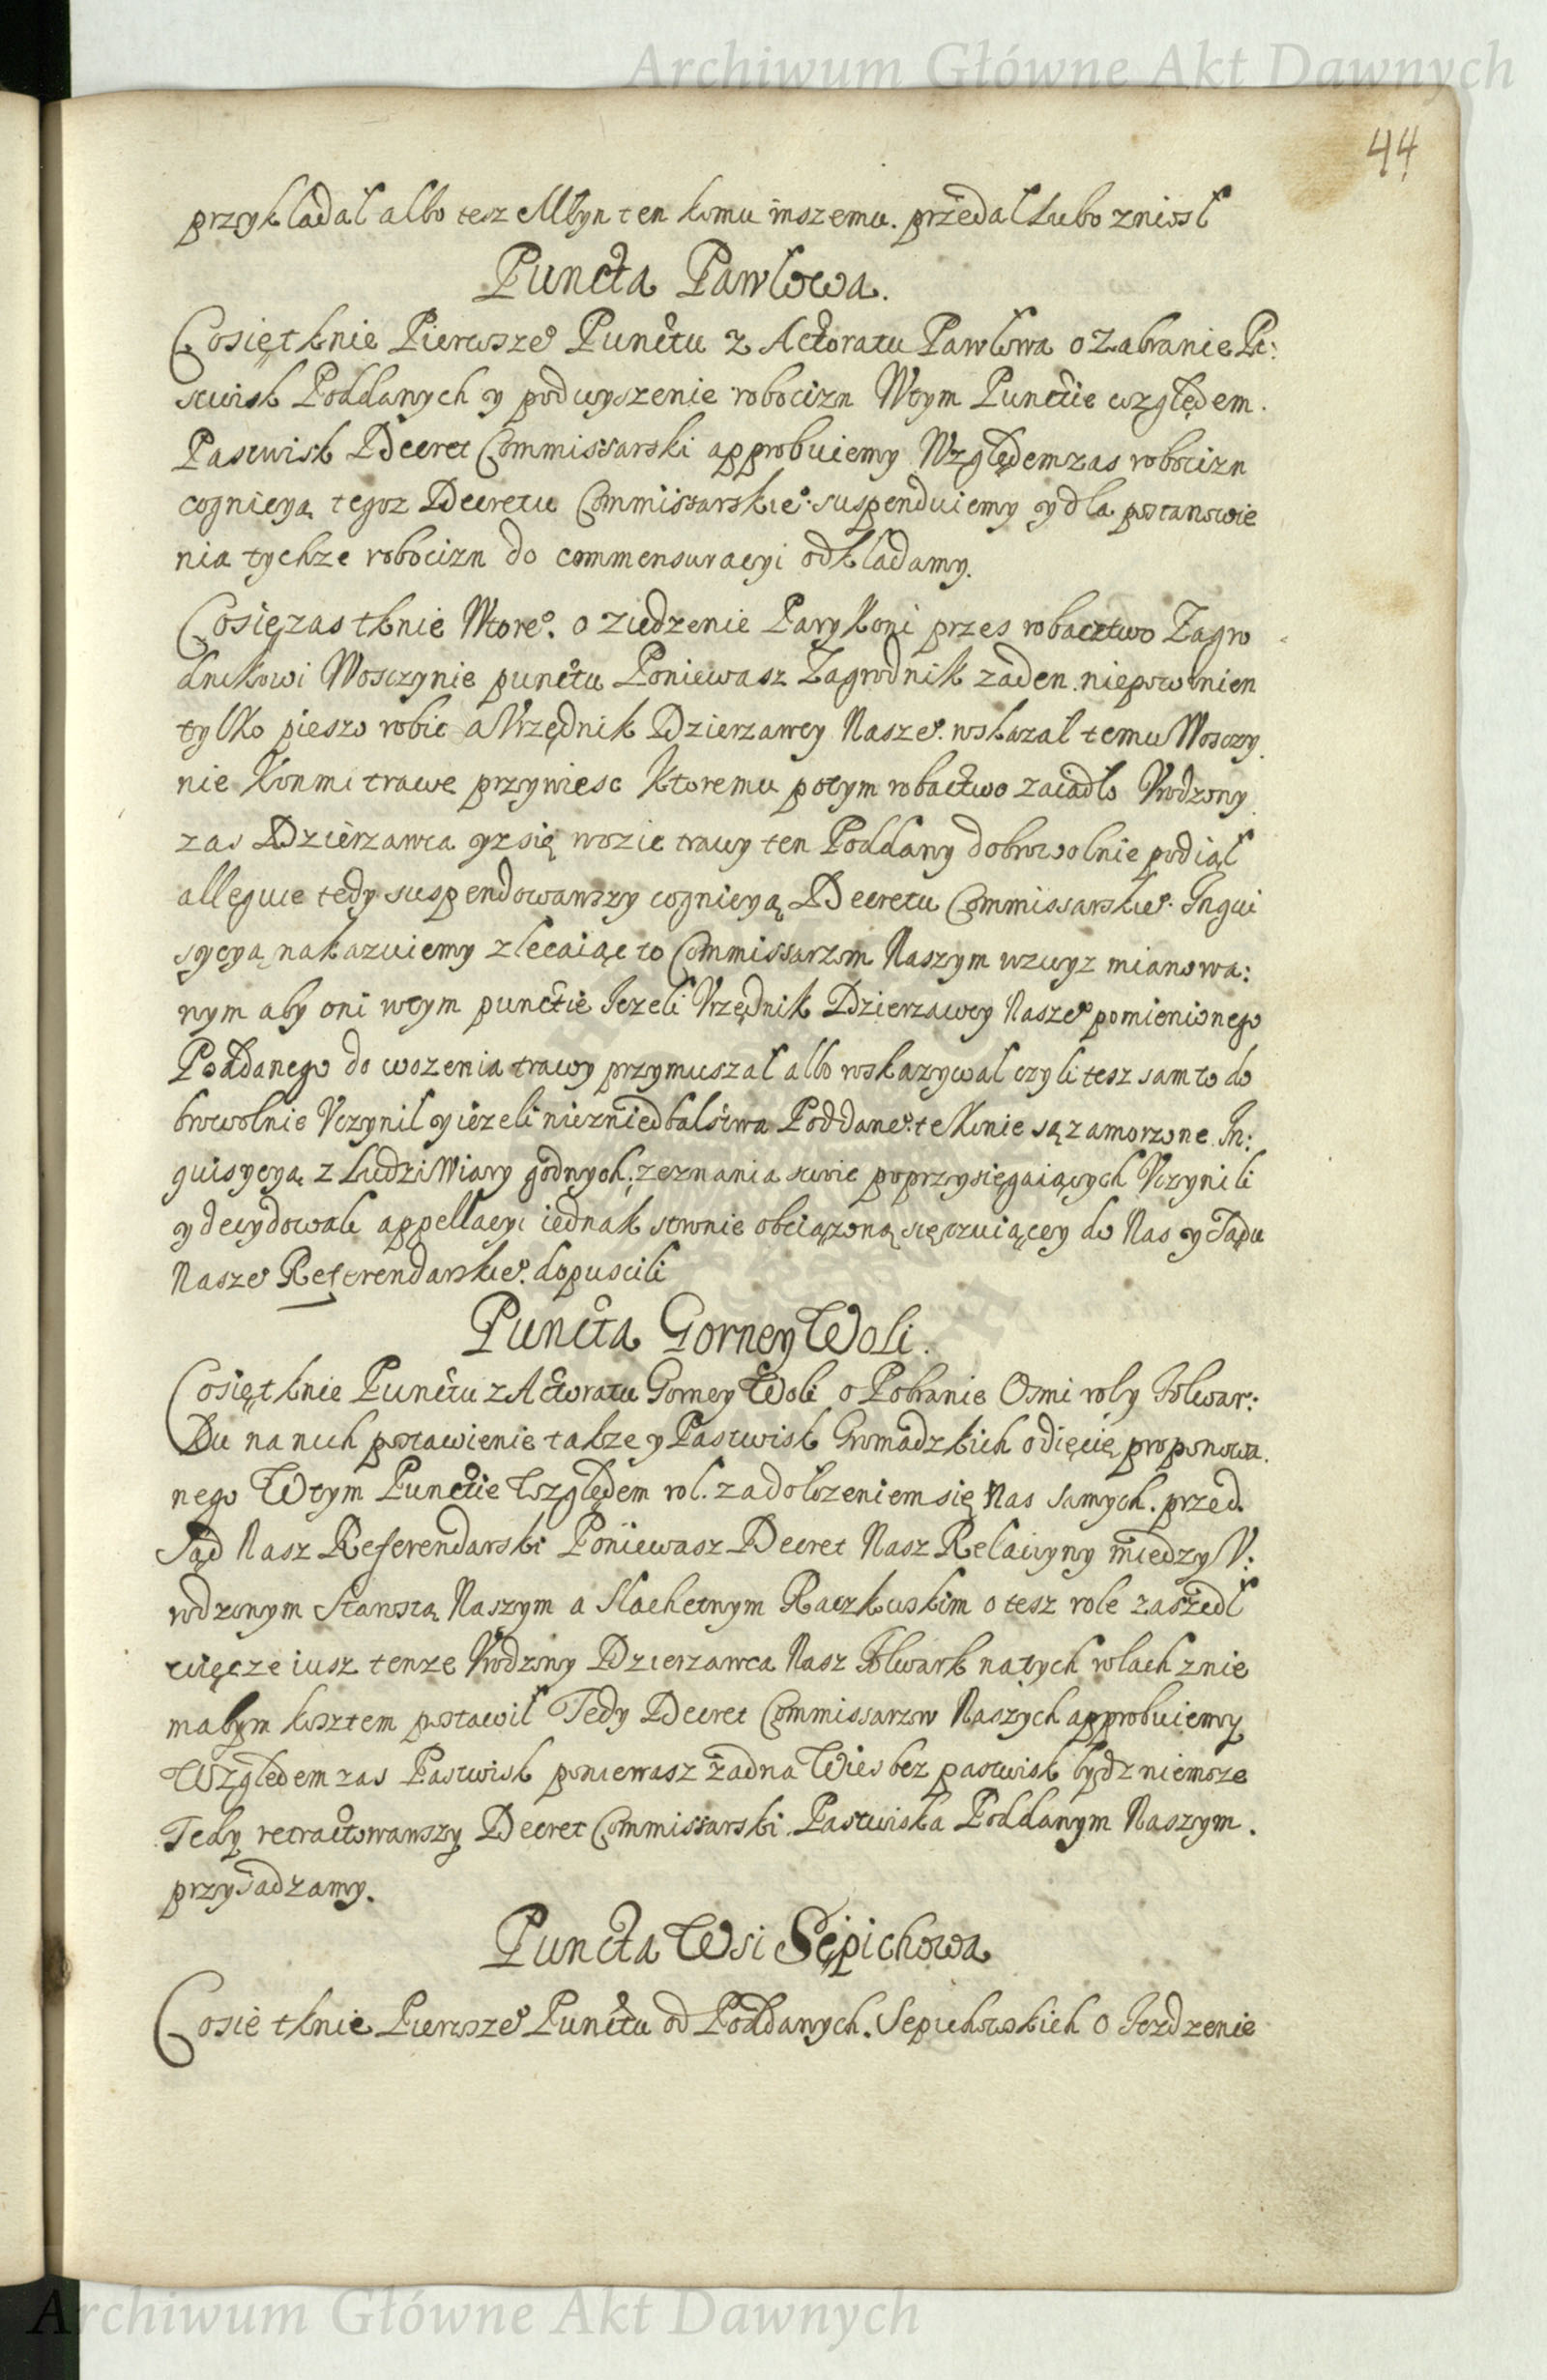 Archiwum Główne Akt Dawnych
44
przykładał albo tesz Młyn ten komu inszemu. przedał lubo zniosł
Puncta Pawłowa.
Cosię tknie Pierwsze° Punctu z Actoratu Pawłowa o Zabranie Pa:
stwisk Poddanych y podwyszenie robocizn Wtym Punctie względem.
Pastwisk Decret Commissarski approbuiemy Względem zas robocizn
cognicyą tegoz Decretu Commissarskie°. suspenduiemy y dla postanowie
nia tychze robocizn do commensuracyi odkładamy.
Cosię zas tknie Wtore°. o ziedzenie Pary koni przes robactwo Zagro
dnikowi Wosczynie punctu Poniewasz Zagrodnik zaden niepowinien
tylko pieszo robic a Vrzędnik Dzierzawcy Nasze°. wskazał temu Wosczy
nie Konmi trawe przywiesc Ktoremu potym robactwo zaiadło Vrodzony
zas Dzierzawca yz się wozic trawy ten Poddany dobrowolnie podiął
alleguie tedy suspendowawszy cognicyą Decretu Commissarskie°. Inqui
sycyą nakazuiemy zlecaiąc to Commissarzom Naszym wzwyz mianowa:
nym aby oni wtym punctie Iezeli Vrzędnik Dzierzawcy Nasze° pomienionego
Poddanego do wozenia trawy przymuszał albo wskazywał czyli tesz sam to do
browolnie Vczynił y iezeli niezniedbalstwa Poddane°. te Konie są zamorzone In:
quisycyą z ludzi Wiary godnych, zeznania swie poprzysięgaiących Vczynili
y decydowali appellacyi iednak stronie obciązoną się czuiącey do Nas y Sądu
Nasze° Referendarskie°. dopuscili
Puncta Gorney Woli.
Cosię tknie Punctu z Actoratu Gorney Woli o Pobranie Osmi roly Folwar:
Du na nich postawienie takze y Pastwisk Gromadzkich odięcię proponowa.
nego Wtym Punctie Względem rol. zadołozeniem się Nas samych. przed.
Sąd Nasz Referendarski Poniewasz Decret Nasz Relacyny miedzy V:
rodzonym Starostą Naszym a Slachetnym Raczkuskim o tesz role zaszedł
więcze iusz tenze Vrodzony Dzierzawca Nasz Folwark natych rolach znie
małym kosztem postawił Tedy Decret Commissarzow Naszych approbuiemy
Względem zas Pastwisk poniewasz żadna Wies bez pastwisk bydz niemoze
Tedy retractowawszy Decret Commissarski Pastwiska Poddanym Naszym.
przysadzamy.
Puncta Wsi Sępichowa
Cosie tknie Pierwsze° Punctu od Poddanych. Sepichowskich o Iezdzenie
Archiwum Główne Akt Dawnych